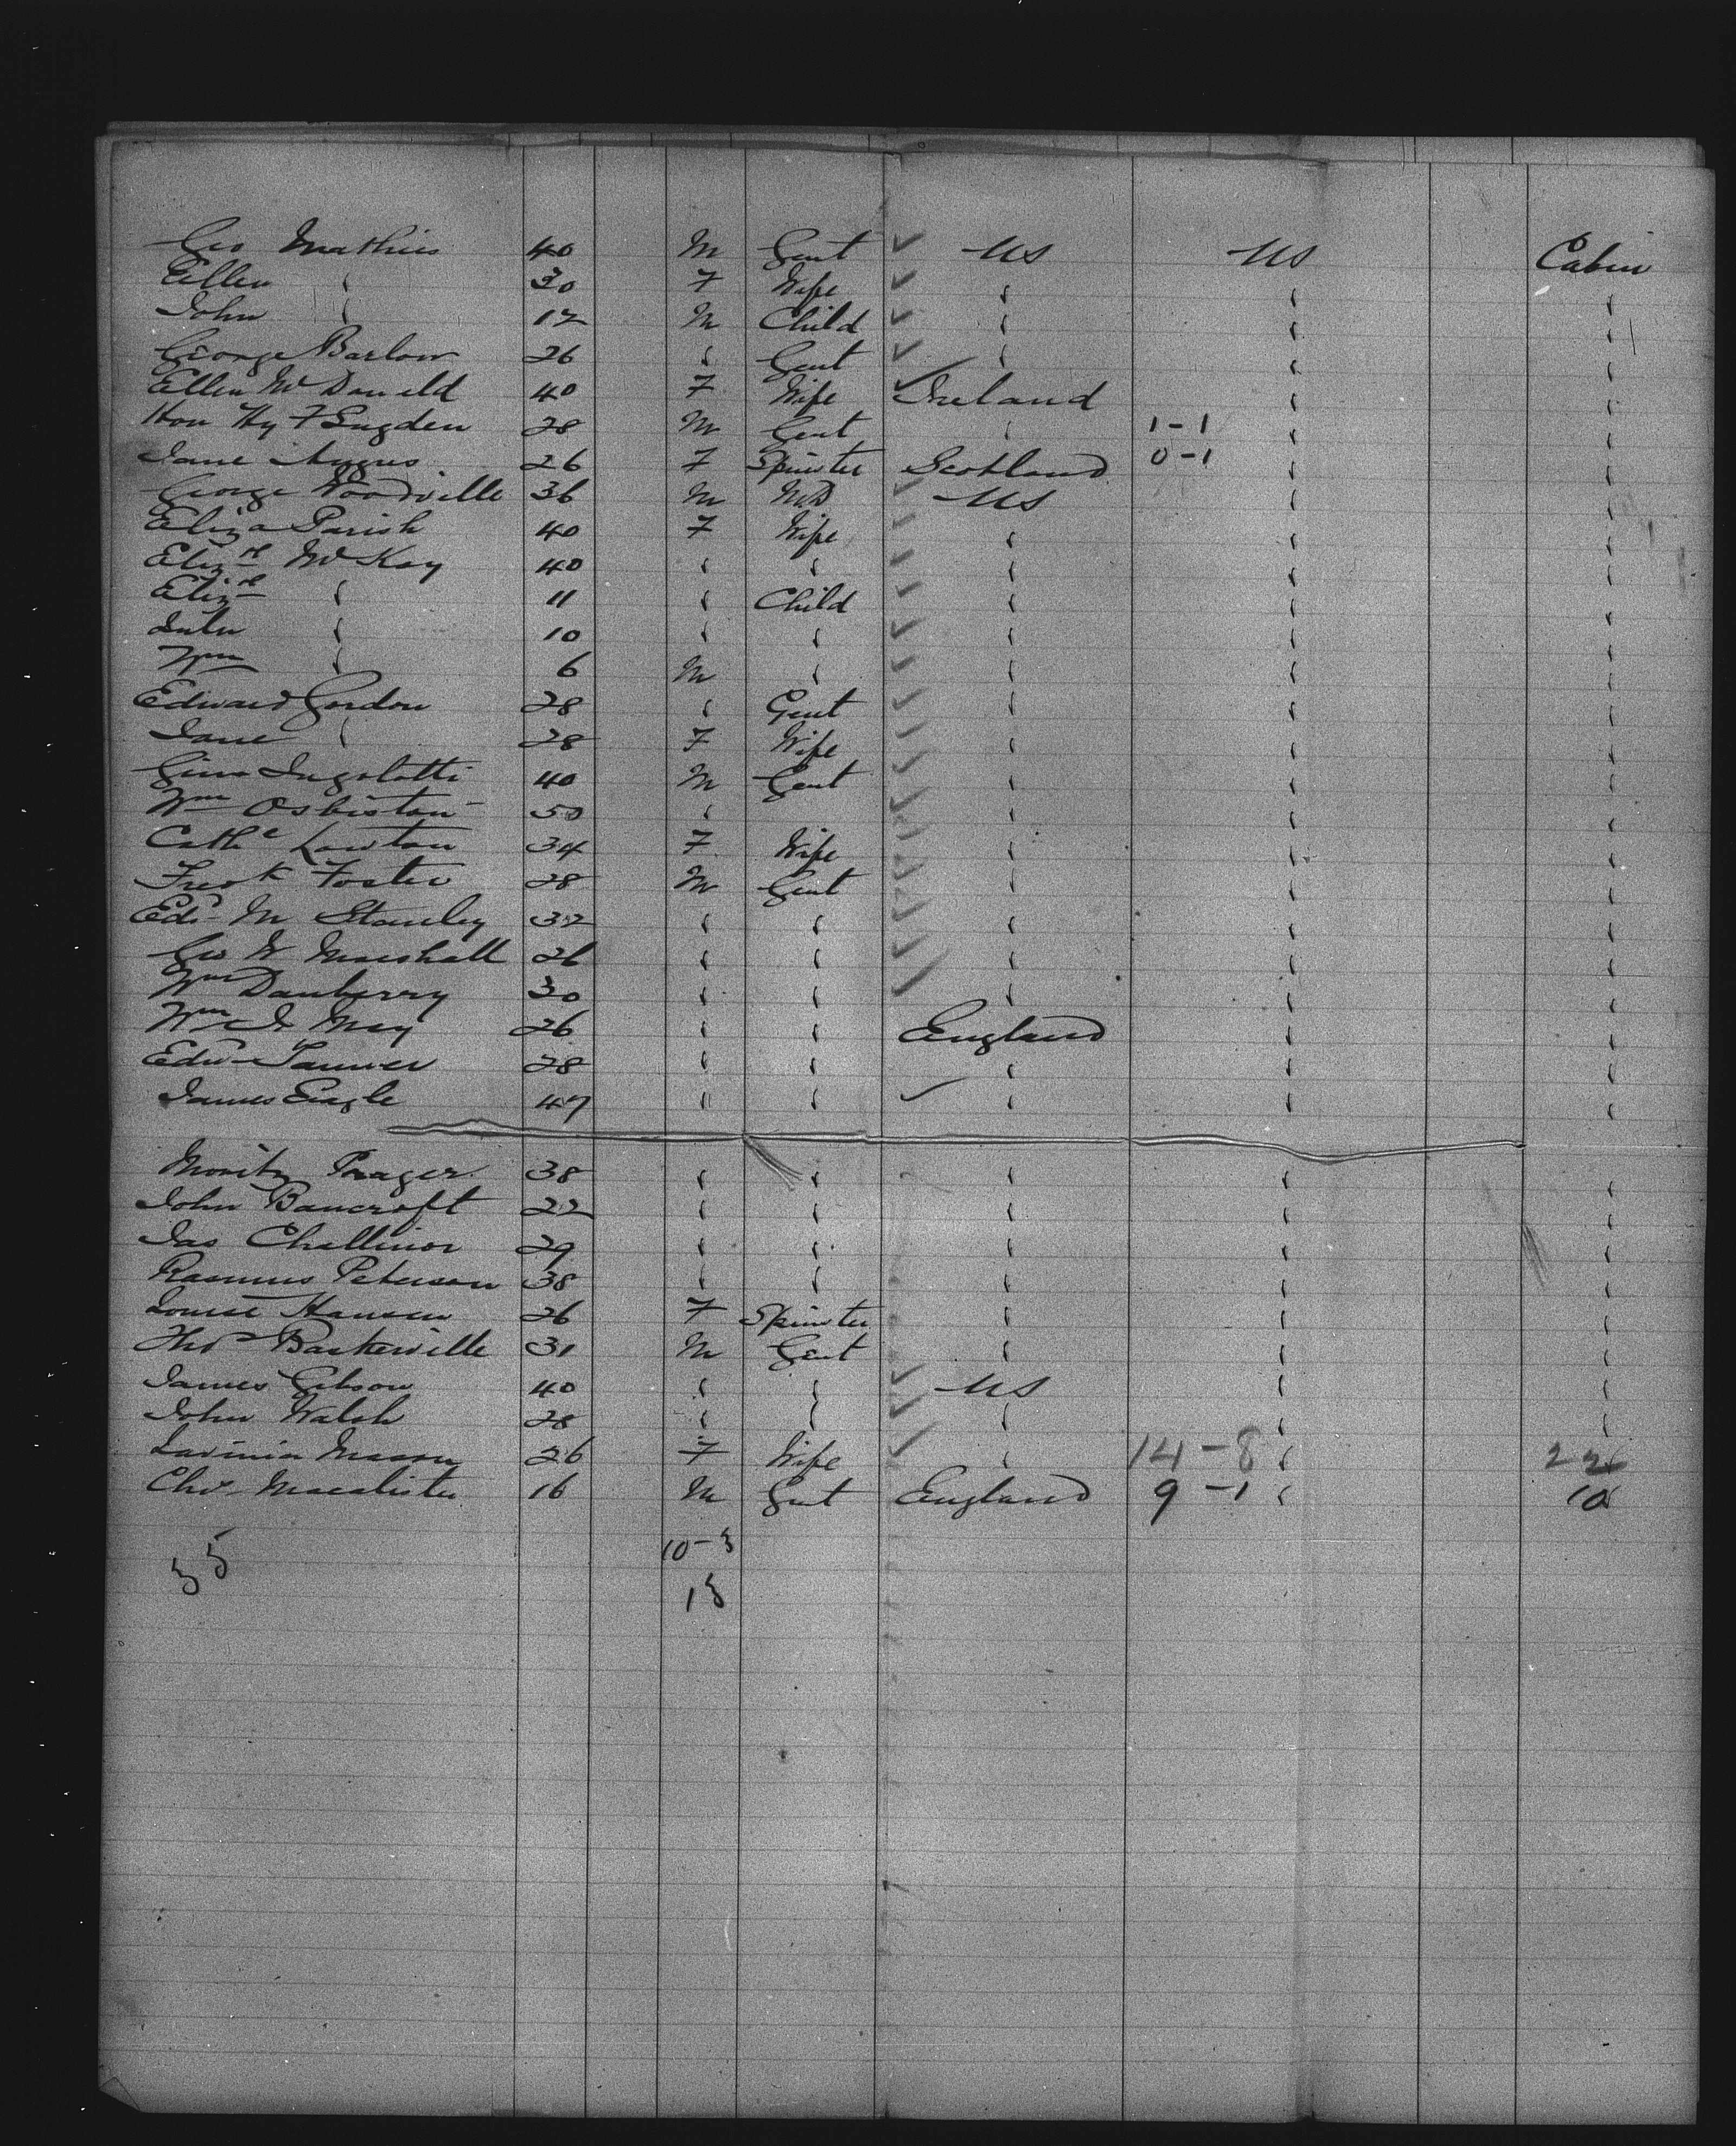 Geo Mathies 40 M Gent ✓ US US Cabin
Ellen " 30 F Wife ✓ " " "
John " 12 M Child ✓ " " "
George Barlow 26 " Gent ✓ " " "
Ellen McDonald 40 F Wife ✓ Ireland " "
Hon Hy F Sugden 28 M Gent " 1-1 " "
Jane Angus 26 F Spinster Scotland 0-1 " "
George Woodville 36 M MD ✓ US " "
Eliza Parish 40 F Wife ✓ " " "
Elizth McKay 40 " " ✓ " " "
Elizth " 11 " Child ✓ " " "
Lulu " 10 " " ✓ " " "
Wm " 6 M " ✓ " " "
Edward Gordon 28 " Gent ✓ " " "
Jane " 28 F Wife ✓ " " "
40 M Gent ✓ " " "
Wm Osbiston 50 " ✓ " " "
Cathe Lawton 34 F Wife ✓ " " "
Fredk Foster 28 M Gent ✓ " " "
Edw M Stanley 32 " " ✓ " " "
Geo W Marshall 26 " " ✓ " " "
Wm Danberry 30 " " ✓ " " "
Wm May 26 " " England " "
Edw Tanner 28 " " " " "
James Eagle 47 " " ✓ " " "
Moritz Prager 38 " " " " "
John Bancroft 22 " " " " "
Jas Challinor 29 " " " " "
Rasmus Peterson 38 " " " " "
Louise Hansen 26 F Spinster " " "
Thos Baskerville 31 M Gent " " "
James Gibson 40 " " ✓ US " "
John Walsh 28 " " ✓ " " "
Lavinia Mason 26 F Wife ✓ " 14-8 " 22
Chs Macalister 16 M Gent England 9-1 " 10
35 10-3
13